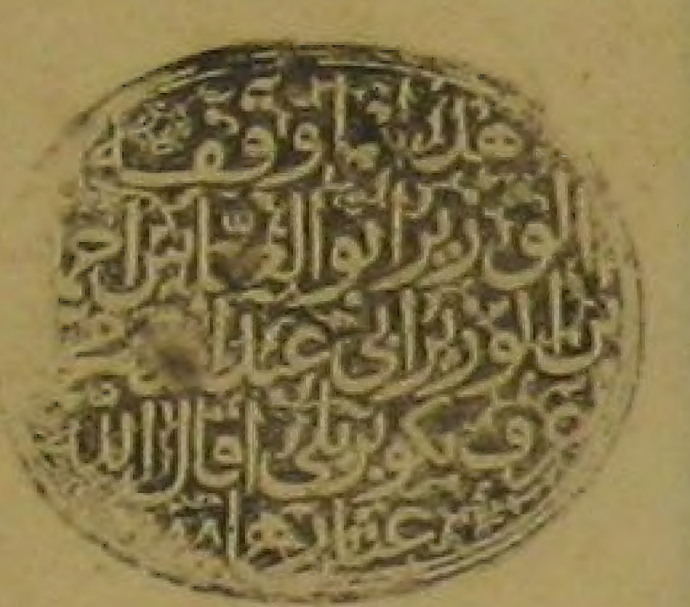 هذا مما وقفه
الوزير ابو العباس احمد
بن الوزير ابي عبد الله
عرف بكوبريلي اقال الله
عثارهما